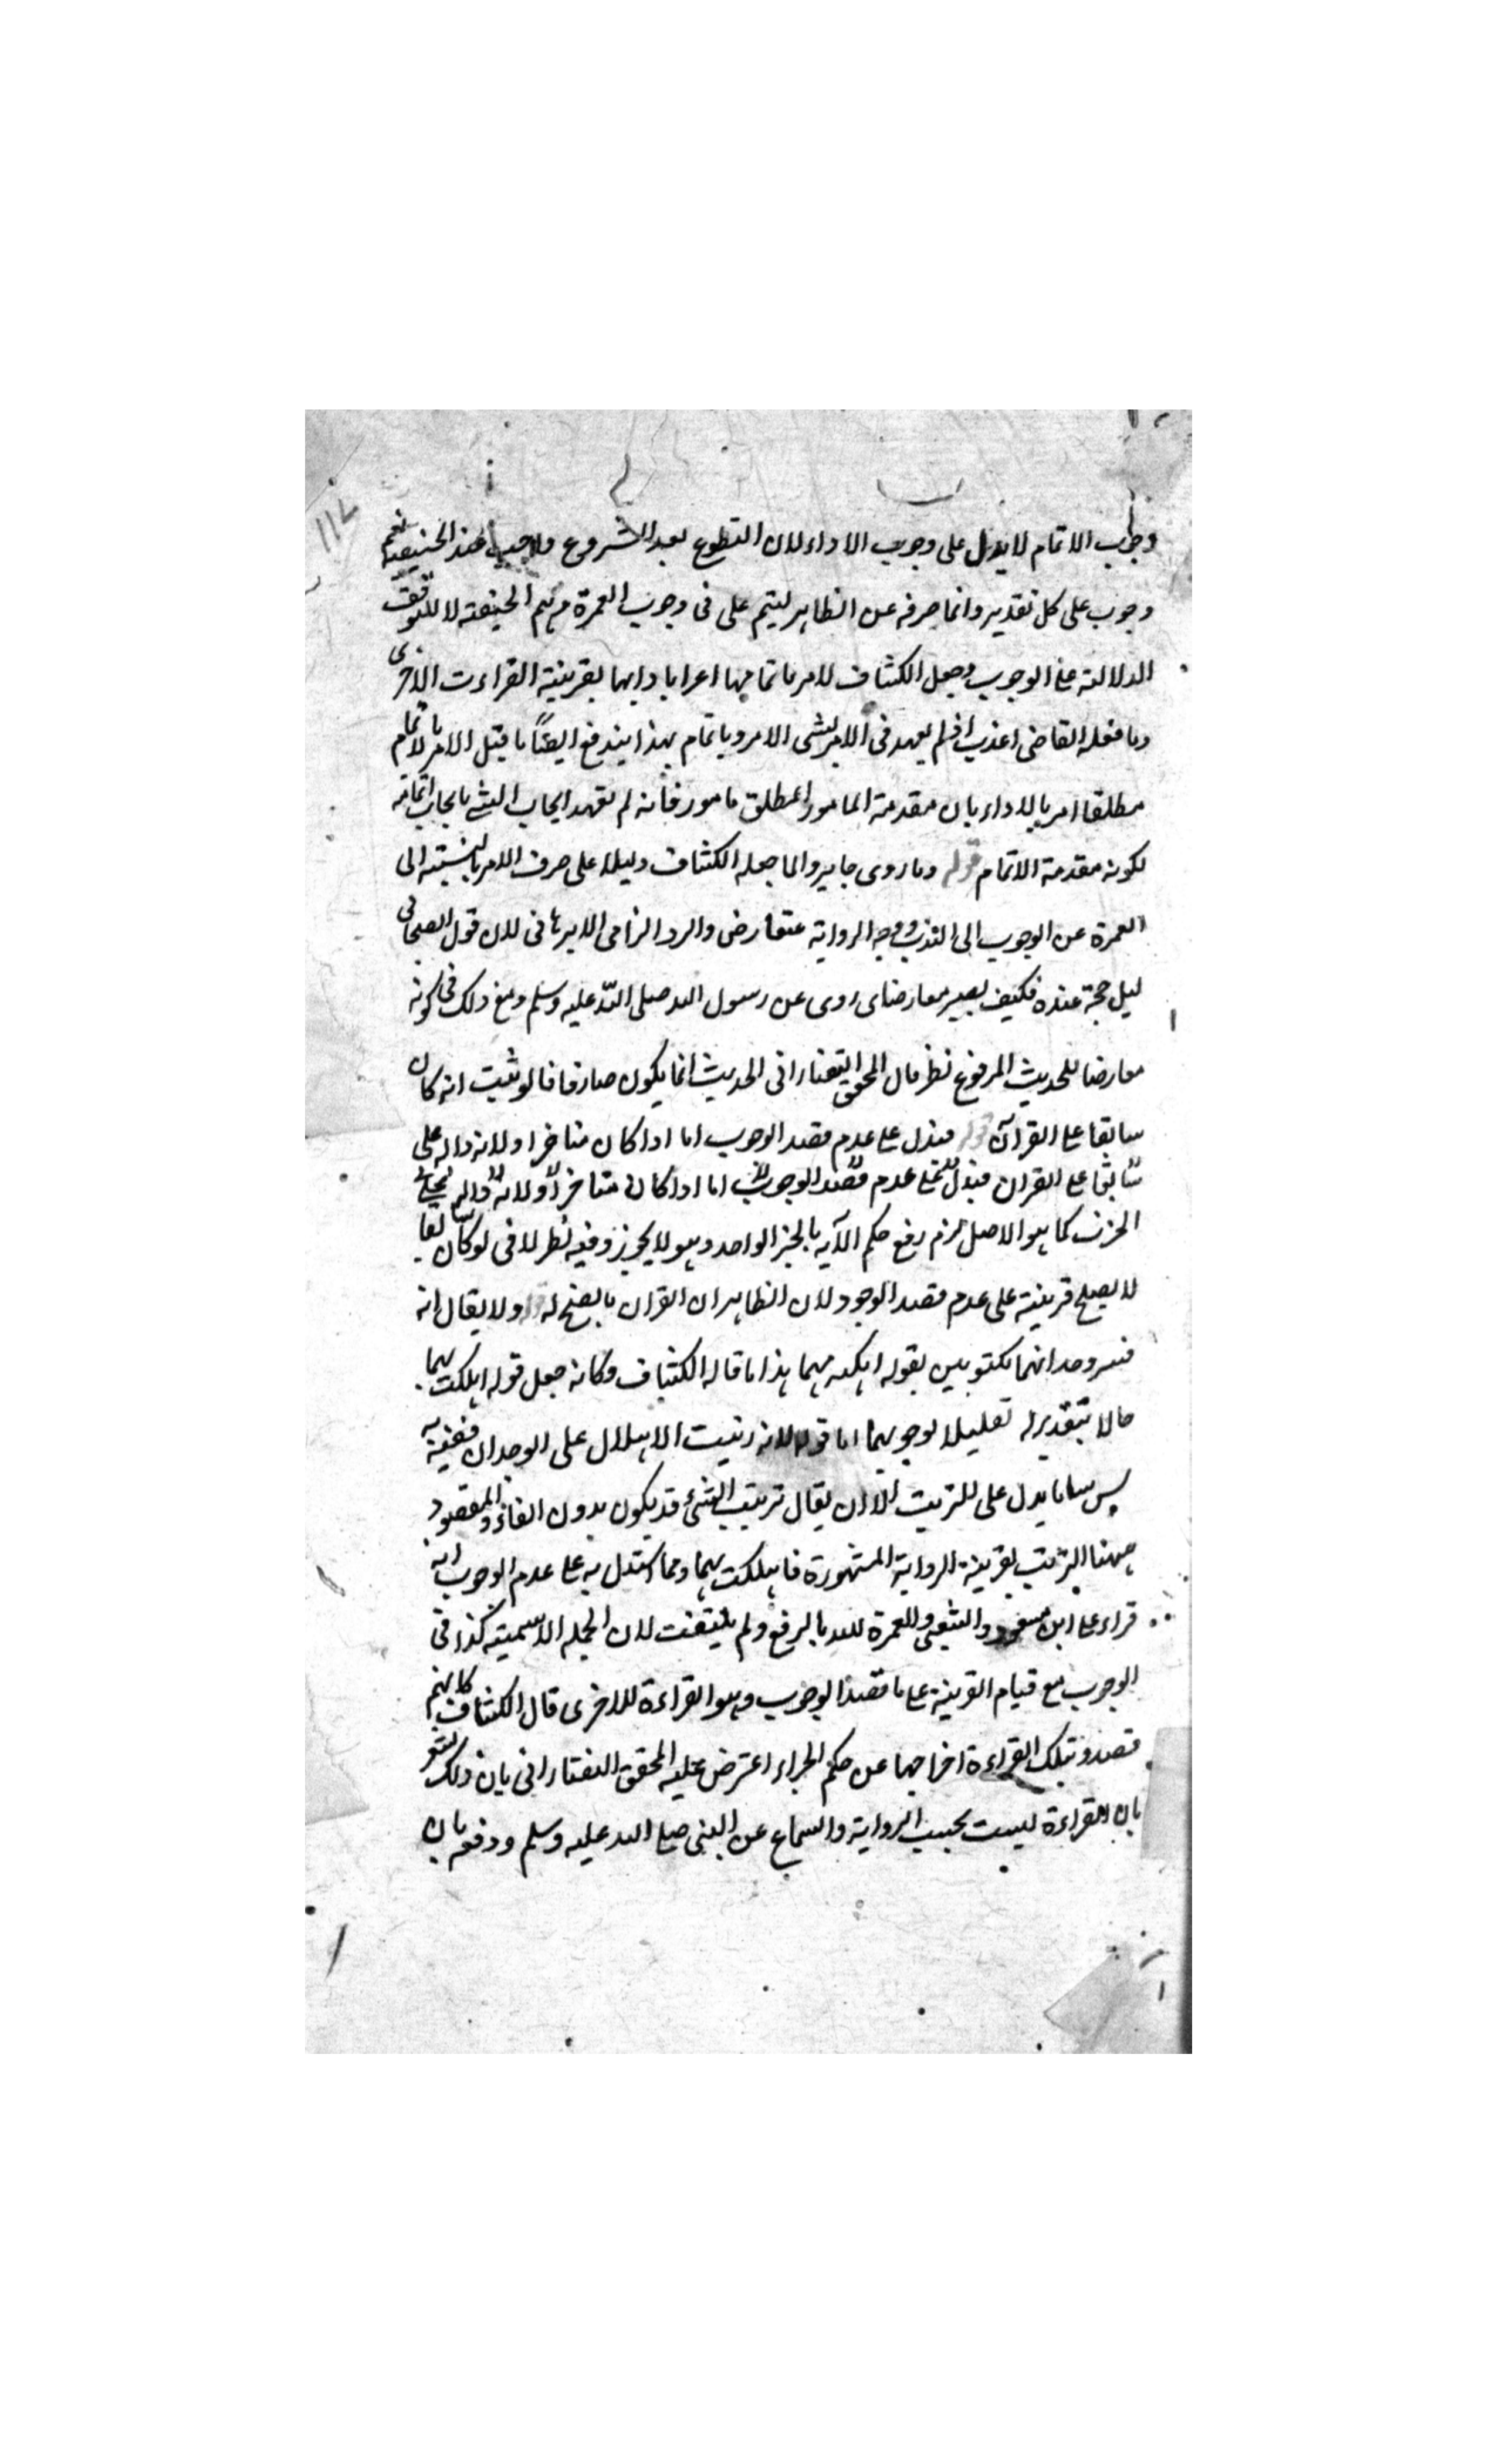 وجوب الاتمام لا يدل على وجوب الاداء لان التطوع بعد الشروع واجب عند الحنيفة نعم
وجوب على كل تقدير وانما صرفه عن الظاهر ليتم على فى وجوب العمرة الحنيفة لا للتوقف
الدلالة على الوجوب وجعل الكشاف للامر باتمامها امرا باداىها بقرينة القراءت الاخرى
وما فعله القاضى اعذب اذ لم يعهد فى الامر بشى الامر باتمام بهذا يندفع ايضًا ما قيل الامر بالاتمام
مطلقا امر بالاداء بان مقدمة المامور المطلق مامور فانه لم يعهد ايجاب الشى بايجاب اتمامه
لكونه مقدمة الاتمام قوله وما روى جابر والما جعله الكشاف دليلا على صرف الامر بالنسبته الى
العمرة عن الوجوب الى الندب ووجه الرواية متعارض والرد الزامى لان قول الصحابى
ليل حجة عنده فكيف يصير معارضا روى عن رسول الله صلى الله عليه وسلم ومع ذلك فى كونه
معارضا للحديث المرفوع نظر قال المحقق التفتازانى الحديث انما يكون صارفا لو ثبت انه كان
سابقا على القرآن قوله فيدل على عدم قصد الوجوب اما اذا كان متاخرا ولانه دالة على
سابقا على القران فيدل على عدم قصد الوجوب اما اذا كان متاخرا ولانه
كما هو الاصل لزم رفع حكم الآيه بالخبر الواحد وهو لا يجوز وفيه نظر لانى لو كان سابقا
لا يصلح قرينة على عدم قصد الوجود لان الظاهر ان القران له قوله ولا يقال انه
فسر وجدانهما مكتوبين بقوله بهما هذا ما قاله الكشاف وكانه جعل قوله اهلكت بهما
حالا بتقدير له تعليلا لوجوبهما اما قوله لانه رتبت الاهلال على الوجدان ففيه
ليس ما يدل على للترتيب الا ان يقال ترتيب الشى قد يكون بدون الفاء والمقصود
ههنا الترتيب بقرينة الرواية المشهورة فاهلكت بهما ومما استدل به على عدم الوجوب انه
قراء على ابن مسعود والشعبى والعمرة لله بالرفع ولم يلتفت لان الجمله الاسمية كذا فى
الوجوب مع قيام القرينة على ما قصد الوجوب وهو القراءة للاخرى قال الكشاف كانهم
قصدو بتلك القراءة اخراجها عن حكم اعترض عليه المحقق التفتازانى بان ذلك يشعر
بان القراءة ليست بحسب الرواية والسماع عن النبى صلى الله عليه وسلم ودفعه بان